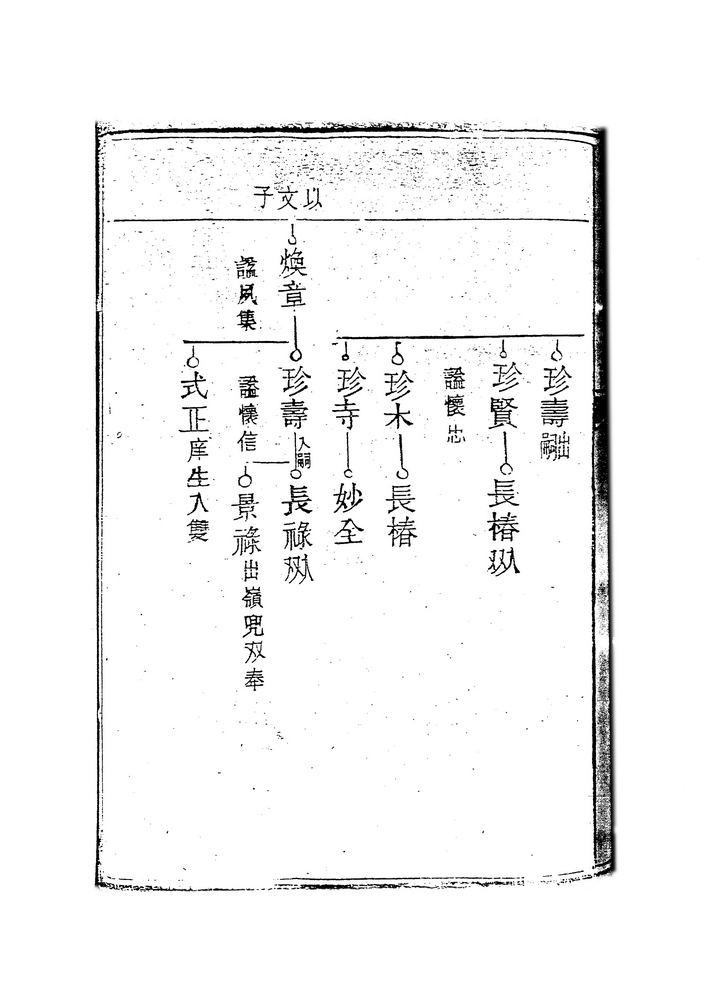 以文子
珍壽出嗣
珍賢
長椿双
諡懷忠
珍木
長椿
珍寺
妙全
煥章
珍壽入嗣
長祿双
諡夙集
諡懷信
景祿出嶺兜双奉
式正庠生入雙